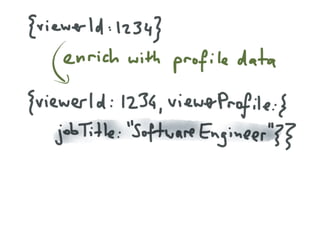 {viewerId:1234}
enrich with profile data
{viewerId: 1234, viewerProfile:{
jobTitle: "Software Engineer"}}